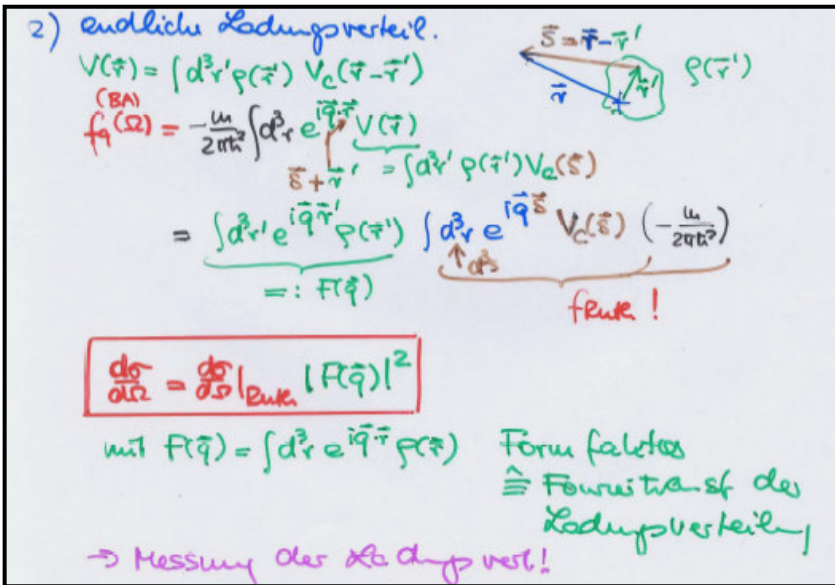 2) endliche Ladungsverteil.
V(r⃗) = ∫d³r' ρ(r⃗') V_C(r⃗-r⃗')
s⃗ = r⃗-r⃗'
r⃗
r⃗'
ρ(r⃗')
(BA)
f_q(Ω) = -m/2πħ² ∫d³r e^{iq⃗·r⃗} V(r⃗)
s⃗+r⃗' = ∫d³r' ρ(r⃗') V_C(s⃗)
= ∫d³r' e^{iq⃗r⃗'} ρ(r⃗') ∫d³r e^{iq⃗s⃗} V_C(s⃗) (-m/2πħ²)
↑ d³s
=: F(q⃗)
f_Ruth !
dσ/dΩ = dσ/dΩ|_Ruth |F(q⃗)|²
mit F(q⃗) = ∫d³r e^{iq⃗·r⃗} ρ(r⃗) Formfaktor
≙ Fouriertransf der
Ladungsverteilung
→ Messung der Ladungsvert!